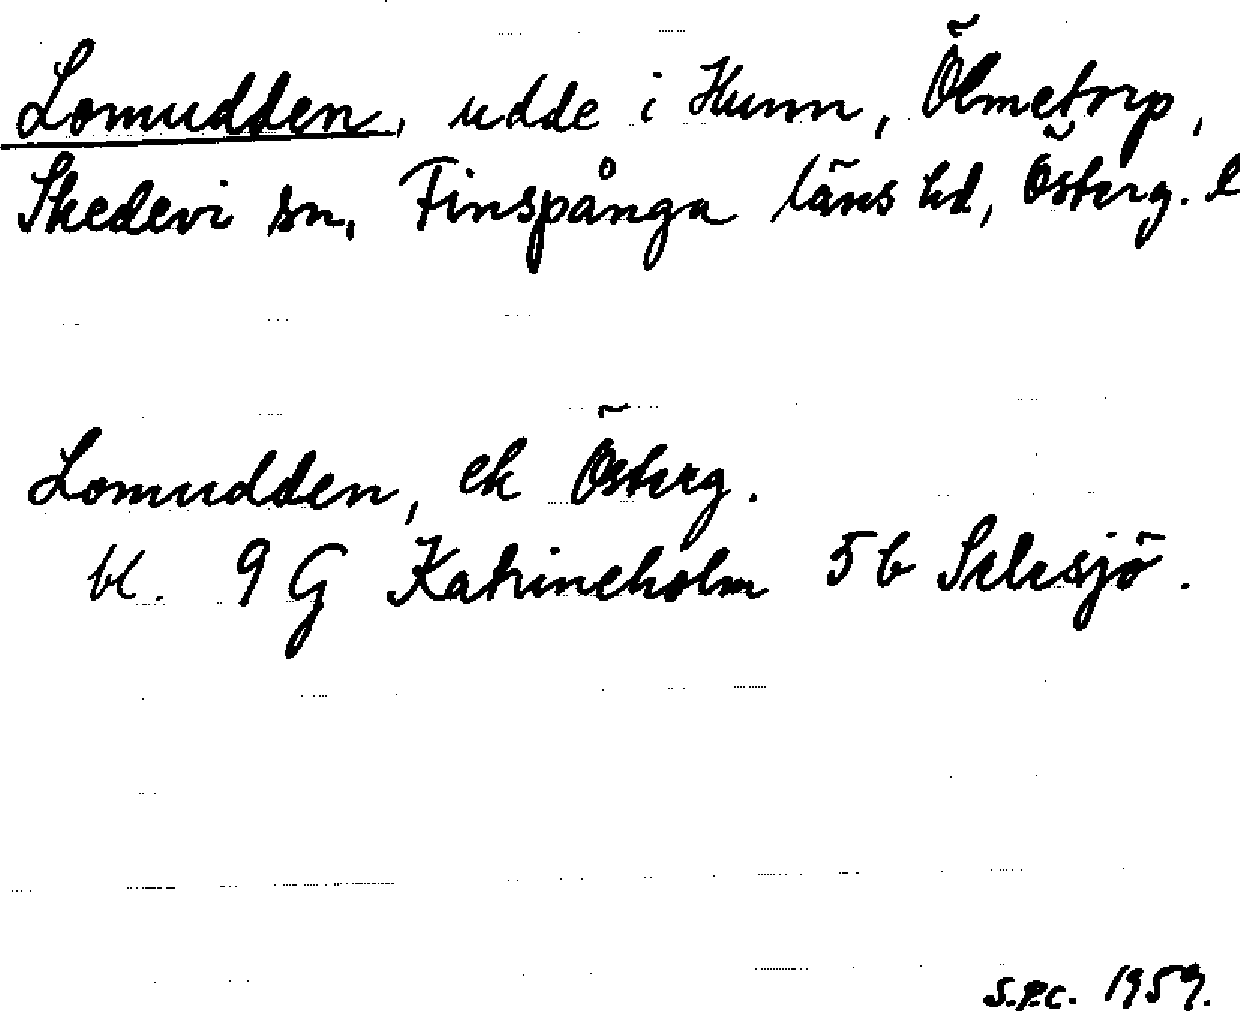 Lomudden, udde i Hunn, Ölmetorp,
Skedevi sn, Finspånga läns hd, Österg. l
Lomudden, ek Österg.
bl. 9 G Katrineholm 5 b Selesjö.
1959.